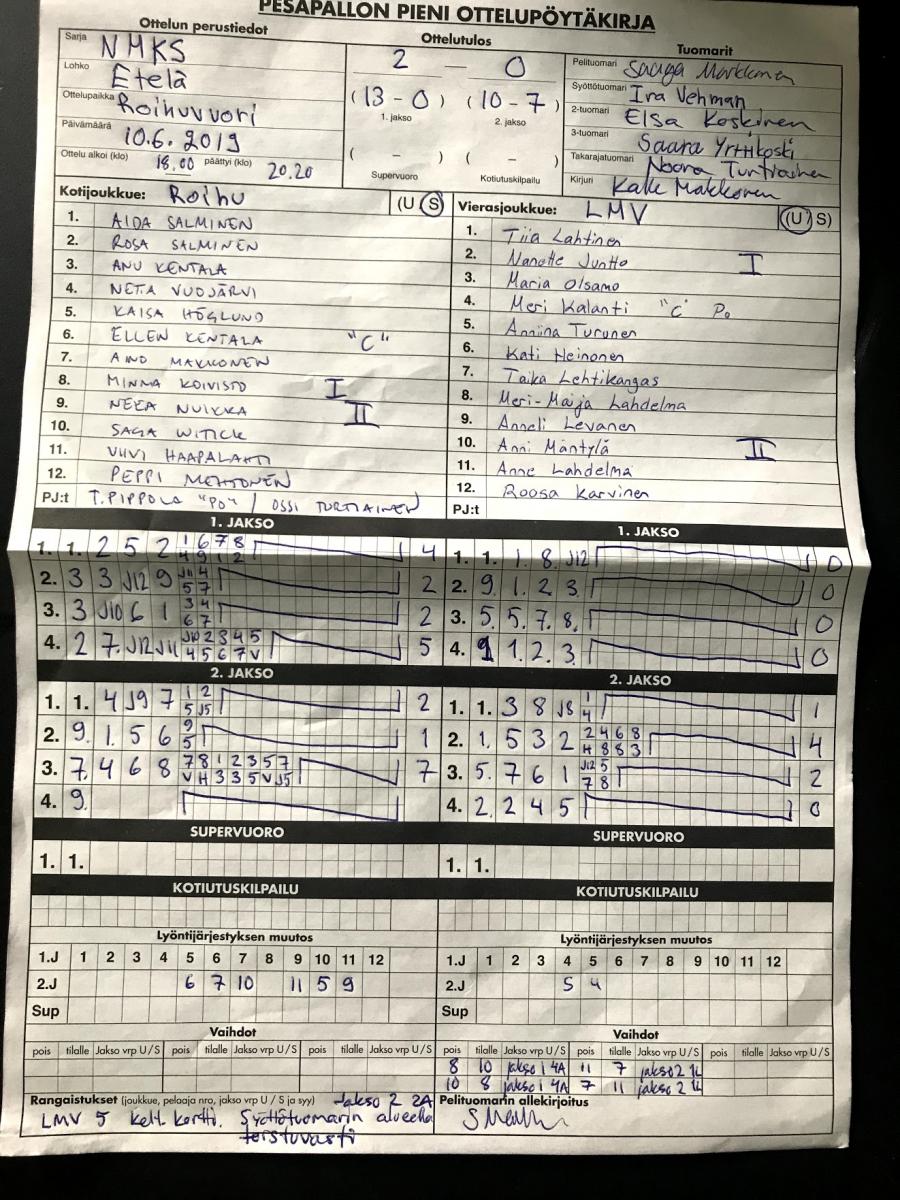 PESÄPALLON PIENI OTTELUPÖYTÄKIRJA
Ottelun perustiedot
Sarja NMKS
Lohko Etelä
Ottelupaikka Roihuvuori
Päivämäärä 10.6.2019
Ottelu alkoi (klo) 18.00 päättyi (klo) 20.20
Ottelutulos
2 — 0
(13 - 0) (10 - 7)
1. jakso 2. jakso
( – ) ( – )
Supervuoro Kotiutuskilpailu
Tuomarit
Pelituomari Saaga Markkanen
Syöttötuomari Ira Vehman
2-tuomari Elsa Koskinen
3-tuomari Saara Yrttikoski
Takarajatuomari Noora
Kirjuri Kalle Makkonen
Kotijoukkue: Roihu (U S)
1. AIDA SALMINEN
2. ROSA SALMINEN
3. ANU KENTALA
4. NETA VUOJÄRVI
5. KAISA HÖGLUND
6. ELLEN KENTALA "C"
7. AINO MAKKONEN
8. MINNA KOIVISTO I
9. NEEA NUIKKA II
10. SAGA WITICK
11. VIIVI HAAPALAHTI
12. PEPPI MEHTONEN
PJ:t T. PIPPOLA "PO" / OSSI TORTIAINEN
Vierasjoukkue: LMV (U S)
1. Tiia Lahtinen
2. Nanette Juntto I
3. Maria Olsamo
4. Meri Kalanti "C" Po
5. Anniina Turunen
6. Kati Heinonen
7. Taika Lehtikangas
8. Meri-Maija Lahdelma
9. Anneli Levanen
10. Anni Mäntylä II
11. Anne Lahdelma
12. Roosa Karvinen
PJ:t
1. JAKSO
1. 1. 2 5 2 1 6 7 8 4
4 9 1 2
2. 3 3 J12 9 J11 4 2
5 7
3. 3 J10 6 1 3 4 2
6 7
4. 2 7. J12 J11 J10 2 3 4 5 5
4 5 6 7 V
1. JAKSO
1. 1. 1. 8. J12 0
2. 9. 1. 2 3. 0
3. 5. 5. 7. 8. 0
4. 9 1. 2. 3. 0
2. JAKSO
1. 1. 4 J9 7 1 2 2
5 J5
2. 9. 1. 5 6 9 1
5
3. 7. 4 6 8 7 8 1 2 3 5 7 7
V H 3 3 5 V J5
4. 9.
2. JAKSO
1. 1. 3 8 J8 1 1
4
2. 1. 5 3 2 2 4 6 8 4
H 8 8 3
3. 5. 7 6 1 J12 5 2
7 8
4. 2. 2 4 5 0
SUPERVUORO
1. 1.
SUPERVUORO
1. 1.
KOTIUTUSKILPAILU
KOTIUTUSKILPAILU
Lyöntijärjestyksen muutos
1.J 1 2 3 4 5 6 7 8 9 10 11 12
2.J 6 7 10 11 5 9
Sup
Lyöntijärjestyksen muutos
1.J 1 2 3 4 5 6 7 8 9 10 11 12
2.J 5 4
Sup
Vaihdot
pois tilalle Jakso vrp U/S pois tilalle Jakso vrp U/S pois tilalle Jakso vrp U/S
Vaihdot
pois tilalle Jakso vrp U/S pois tilalle Jakso vrp U/S pois tilalle Jakso vrp U/S
8 10 jakso 1 4A 11 7 jakso 2 1L
10 8 jakso 1 4A 7 11 jakso 2 1L
Rangaistukset (joukkue, pelaaja nro, jakso vrp U/S ja syy) Jakso 2 2A
LMV 5 kelt. kortti. Syöttötuomarin alueella
toistuvasti
Pelituomarin allekirjoitus